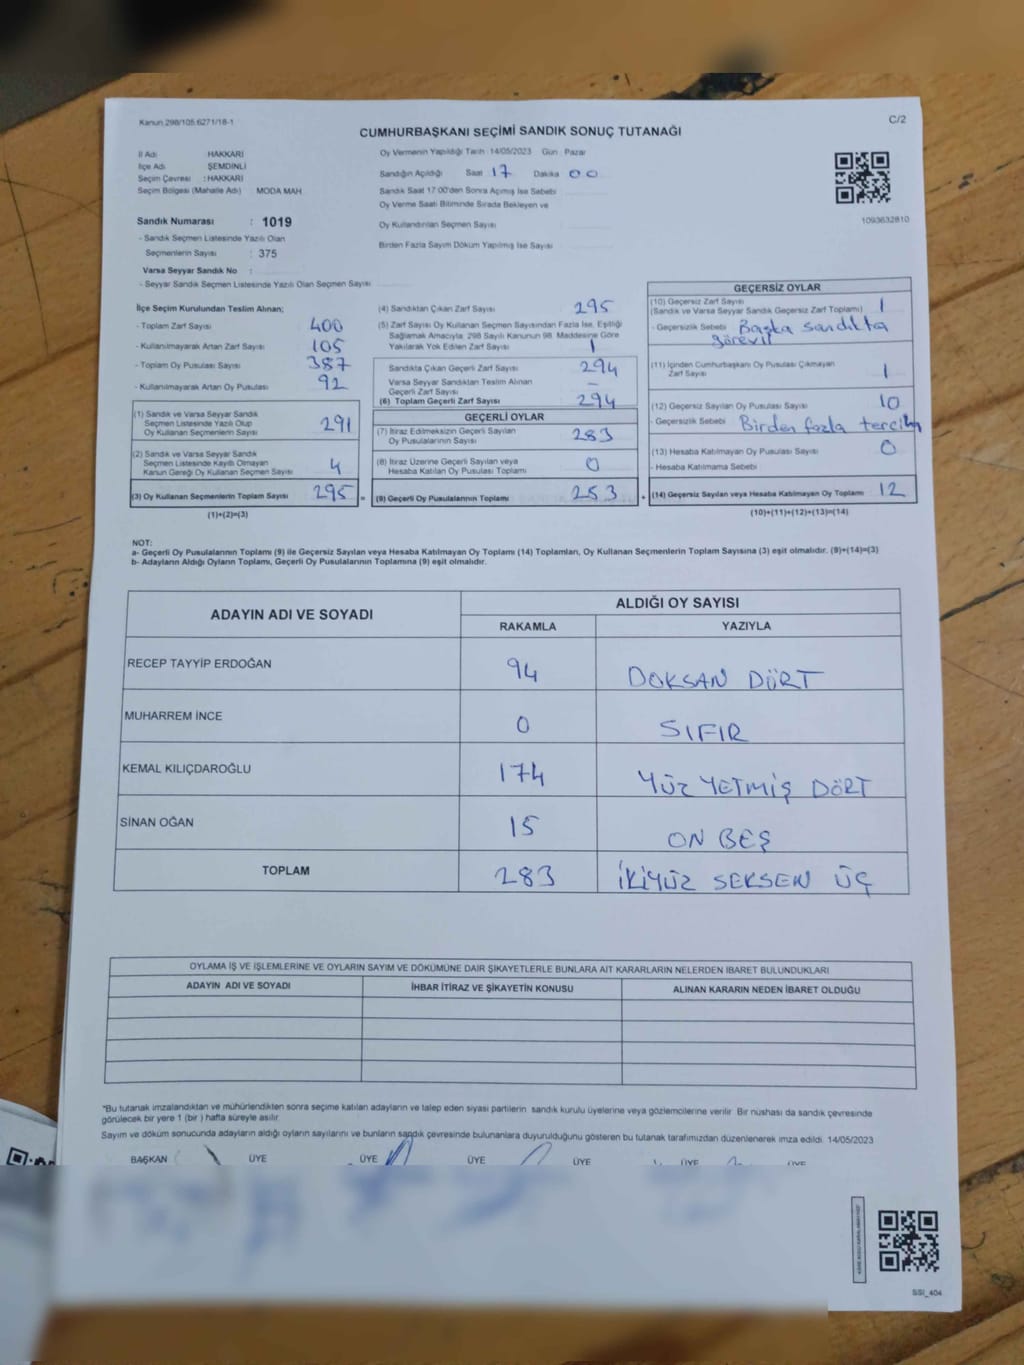 Kanun 298/105 6271/18-1
C/2
CUMHURBAŞKANI SEÇİMİ SANDIK SONUÇ TUTANAĞI
İl Adı HAKKARİ
İlçe Adı ŞEMDİNLİ
Seçim Çevresi : HAKKARİ
Seçim Bölgesi (Mahalle Adı) MODA MAH
Sandık Numarası : 1019
- Sandık Seçmen Listesinde Yazılı Olan
Seçmenlerin Sayısı : 375
Varsa Seyyar Sandık No :
- Seyyar Sandık Seçmen Listesinde Yazılı Olan Seçmen Sayısı
Oy Vermenin Yapıldığı Tarih 14/05/2023 Gün Pazar
Sandığın Açıldığı Saat 17 Dakika 00
Sandık Saat 17 00'den Sonra Açılmış İse Sebebi
Oy Verme Saati Bitiminde Sırada Bekleyen ve
Oy Kullandırılan Seçmen Sayısı
Birden Fazla Sayım Döküm Yapılmış İse Sayısı
1093632810
İlçe Seçim Kurulundan Teslim Alınan;
- Toplam Zarf Sayısı 400
- Kullanılmayarak Artan Zarf Sayısı 105
- Toplam Oy Pusulası Sayısı 387
- Kullanılmayarak Artan Oy Pusulası 92
(1) Sandık ve Varsa Seyyar Sandık
Seçmen Listesinde Yazılı Olup
Oy Kullanan Seçmenlerin Sayısı 291
(2) Sandık ve Varsa Seyyar Sandık
Seçmen Listesinde Kayıtlı Olmayan
Kanun Gereği Oy Kullanan Seçmen Sayısı 4
(3) Oy Kullanan Seçmenlerin Toplam Sayısı 295 =
(1)+(2)=(3)
(4) Sandıktan Çıkan Zarf Sayısı 295
(5) Zarf Sayısı Oy Kullanan Seçmen Sayısından Fazla İse, Eşitliği
Sağlamak Amacıyla 298 Sayılı Kanunun 98. Maddesine Göre
Yakılarak Yok Edilen Zarf Sayısı 1
Sandıkta Çıkan Geçerli Zarf Sayısı 294
Varsa Seyyar Sandıktan Teslim Alınan
Geçerli Zarf Sayısı –
(6) Toplam Geçerli Zarf Sayısı 294
GEÇERLİ OYLAR
(7) İtiraz Edilmeksizin Geçerli Sayılan
Oy Pusulalarının Sayısı 283
(8) İtiraz Üzerine Geçerli Sayılan veya
Hesaba Katılan Oy Pusulası Toplamı 0
(9) Geçerli Oy Pusulalarının Toplamı 253 +
GEÇERSİZ OYLAR
(10) Geçersiz Zarf Sayısı
(Sandık ve Varsa Seyyar Sandık Geçersiz Zarf Toplamı) 1
- Geçersizlik Sebebi Başka sandıkta
görevli
(11) İçinden Cumhurbaşkanı Oy Pusulası Çıkmayan
Zarf Sayısı 1
(12) Geçersiz Sayılan Oy Pusulası Sayısı 10
- Geçersizlik Sebebi Birden fazla tercih
(13) Hesaba Katılmayan Oy Pusulası Sayısı 0
- Hesaba Katılmama Sebebi
(14) Geçersiz Sayılan veya Hesaba Katılmayan Oy Toplamı 12
(10)+(11)+(12)+(13)=(14)
NOT:
a- Geçerli Oy Pusulalarının Toplamı (9) ile Geçersiz Sayılan veya Hesaba Katılmayan Oy Toplamı (14) Toplamları, Oy Kullanan Seçmenlerin Toplam Sayısına (3) eşit olmalıdır. (9)+(14)=(3)
b- Adayların Aldığı Oyların Toplamı, Geçerli Oy Pusulalarının Toplamına (9) eşit olmalıdır.
ADAYIN ADI VE SOYADI
ALDIĞI OY SAYISI
RAKAMLA YAZIYLA
RECEP TAYYİP ERDOĞAN 94 DOKSAN DÖRT
MUHARREM İNCE 0 SIFIR
KEMAL KILIÇDAROĞLU 174 YÜZ YETMİŞ DÖRT
SİNAN OĞAN 15 ON BEŞ
TOPLAM 283 İKİYÜZ SEKSEN ÜÇ
OYLAMA İŞ VE İŞLEMLERİNE VE OYLARIN SAYIM VE DÖKÜMÜNE DAİR ŞİKAYETLERLE BUNLARA AİT KARARLARIN NELERDEN İBARET BULUNDUKLARI
ADAYIN ADI VE SOYADI İHBAR İTİRAZ VE ŞİKAYETİN KONUSU ALINAN KARARIN NEDEN İBARET OLDUĞU
*Bu tutanak imzalandıktan ve mühürlendikten sonra seçime katılan adayların ve talep eden siyasi partilerin sandık kurulu üyelerine veya gözlemcilerine verilir Bir nüshası da sandık çevresinde
görülecek bir yere 1 (bir ) hafta süreyle asılır
Sayım ve döküm sonucunda adayların aldığı oyların sayılarını ve bunların sandık çevresinde bulunanlara duyurulduğunu gösteren bu tutanak tarafımızdan düzenlenerek imza edildi 14/05/2023
BAŞKAN ÜYE ÜYE ÜYE ÜYE ÜYE ÜYE
SSI_404